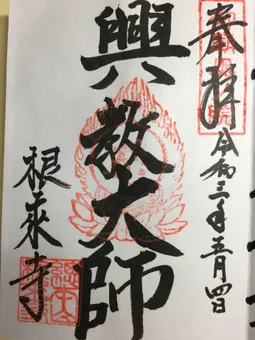 奉拝
令和三年五月四日
興教大師
根来寺